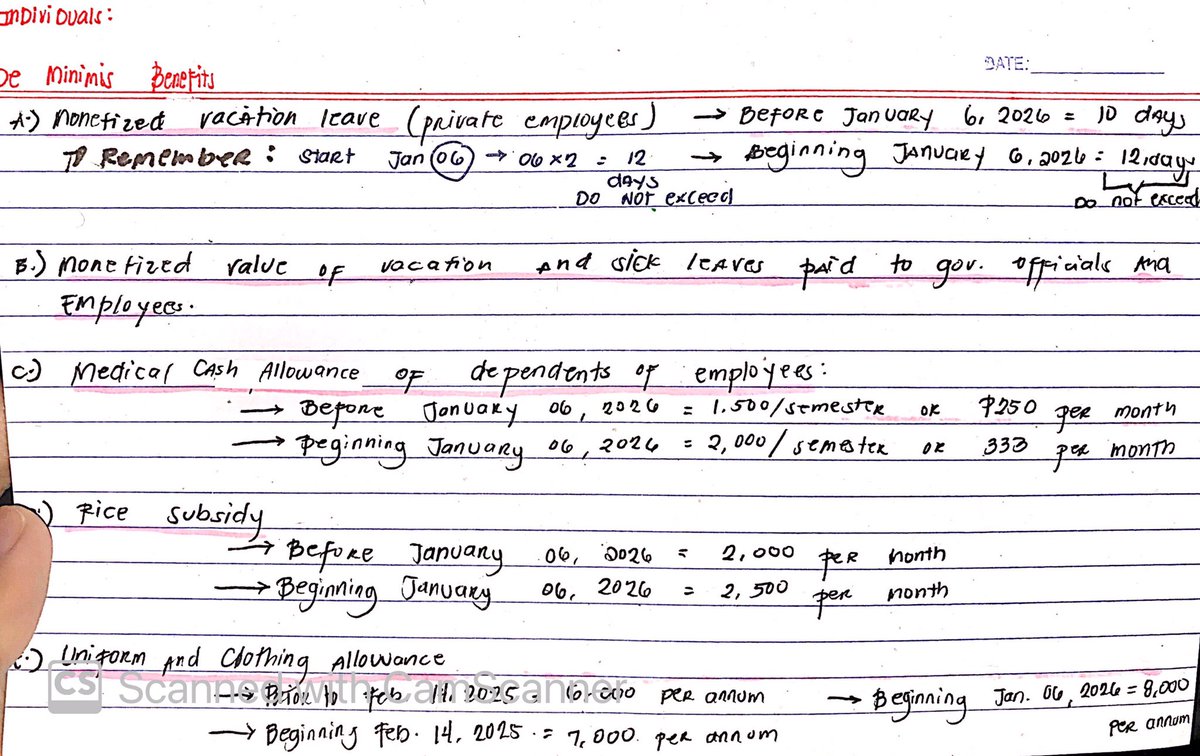 Individuals:
De Minimis Benefits
DATE:
A.) Monetized vacation leave (private employees) → Before January 6, 2026 = 10 days
Remember: Start Jan 06 → 06 x 2 = 12 → Beginning January 6, 2026 = 12 days
days
Do Not exceed
Do not exceed
B.) Monetized value of vacation and sick leaves paid to gov. officials and
Employees.
C.) Medical Cash Allowance of dependents of employees:
→ Before January 06, 2026 = 1.500/semester or ₱250 per month
→ Beginning January 06, 2026 = 2,000/semester or 333 per month
) Rice subsidy
→ Before January 06, 2026 = 2,000 per month
→ Beginning January 06, 2026 = 2,500 per month
.) Uniform and Clothing Allowance
→ Prior to Feb. 14, 2025 = 6,000 per annum → Beginning Jan. 06, 2026 = 8,000
per annum
→ Beginning Feb. 14, 2025 = 7,000 per annum
CS Scanned with CamScanner